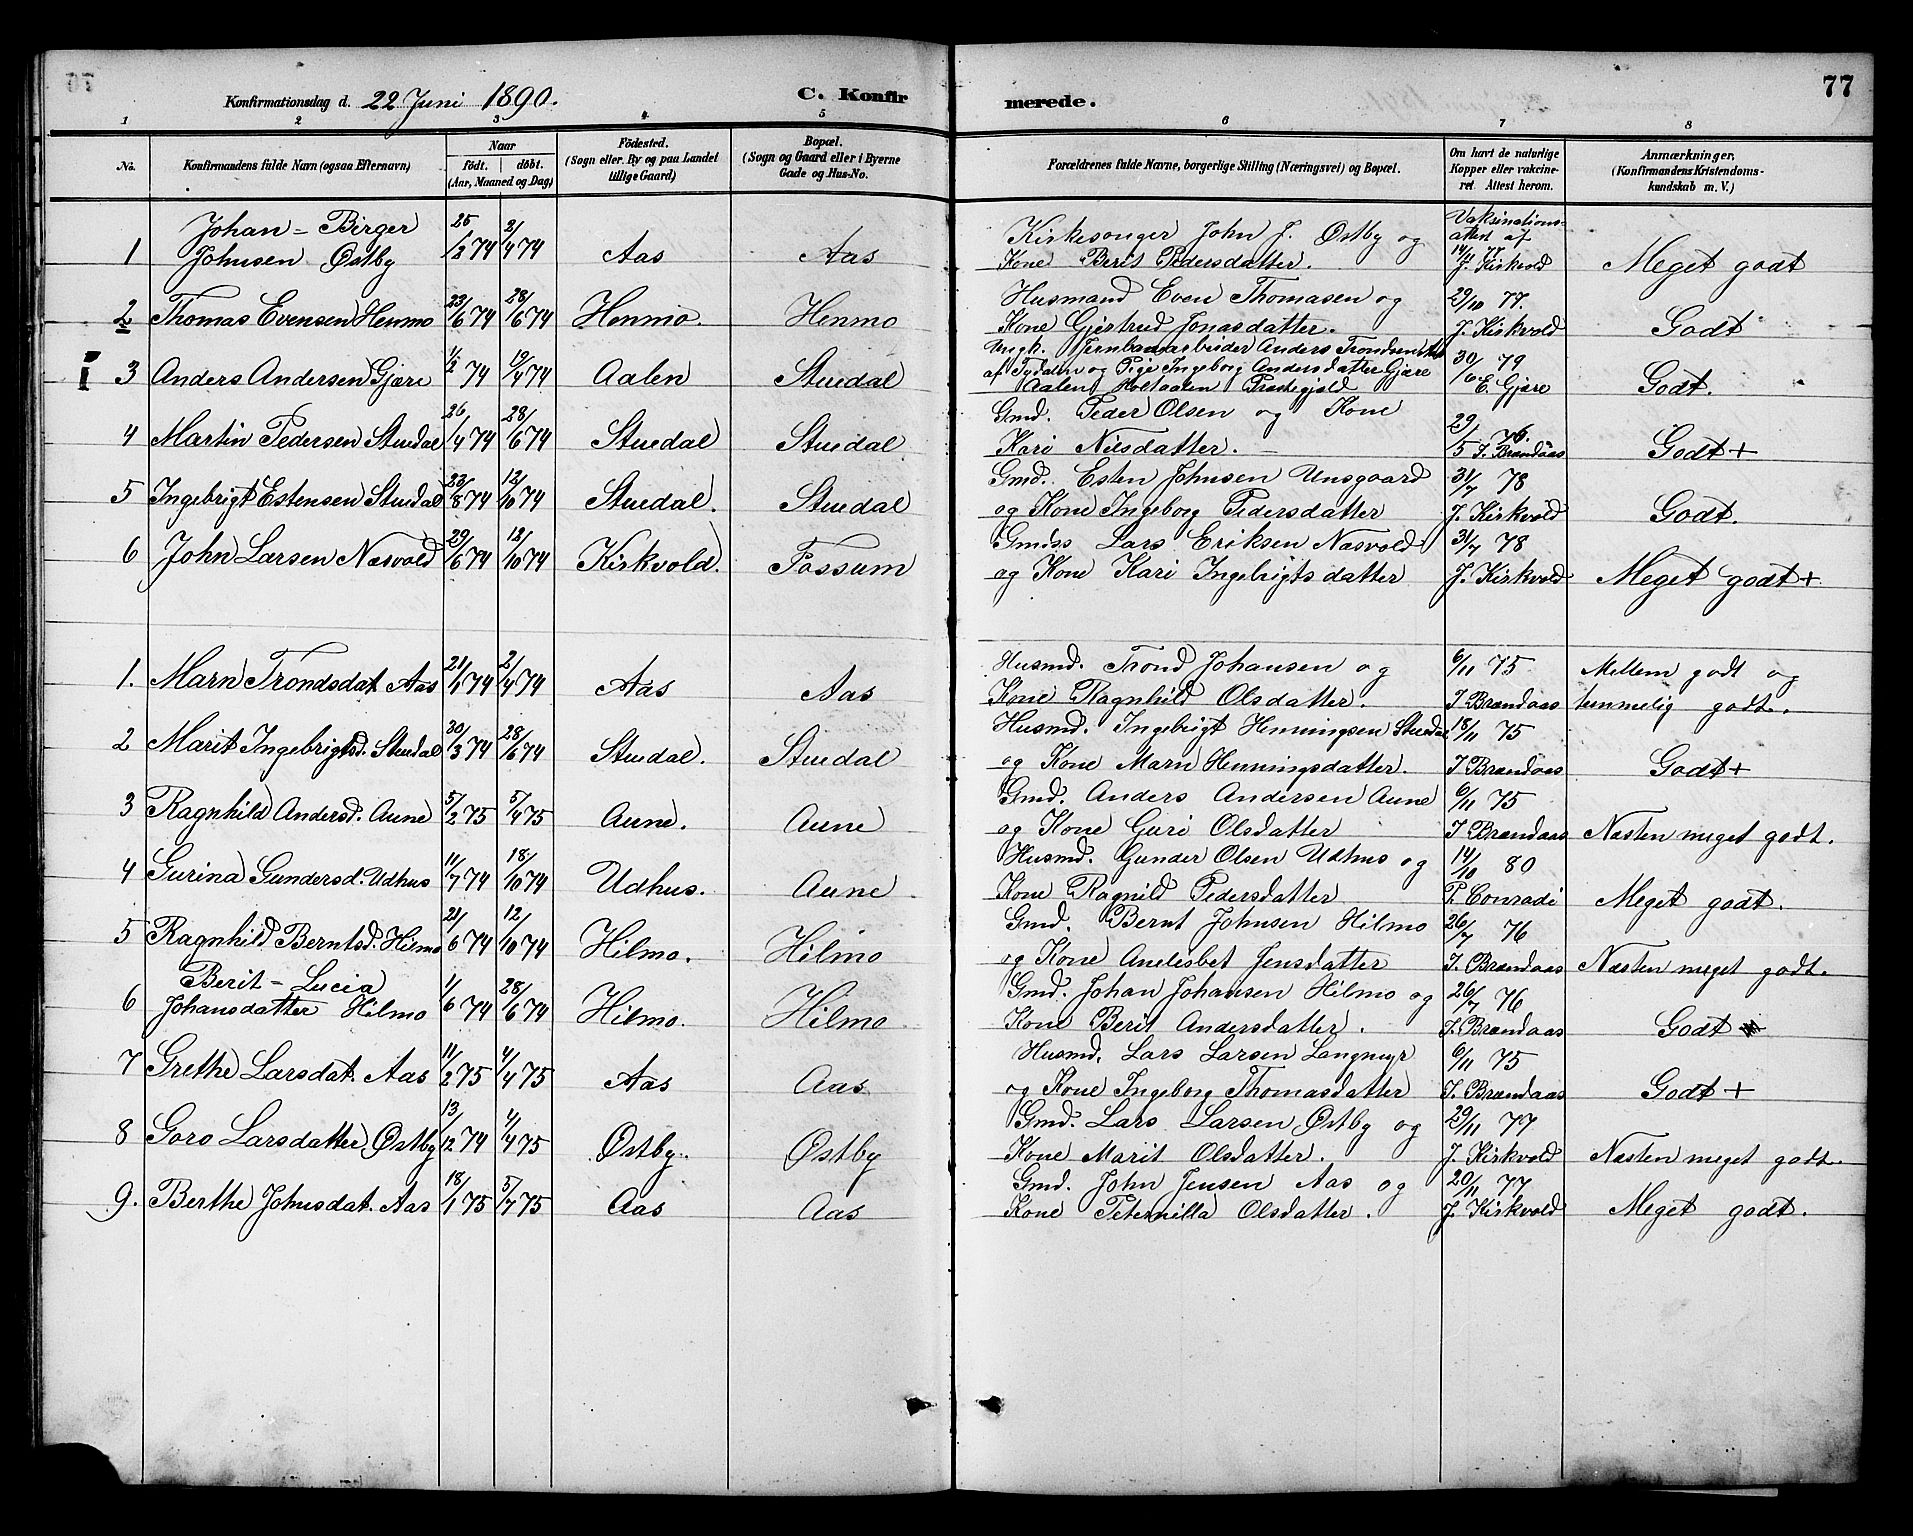 Konfirmationsdag d. 22 Juni 1890. C. Konfirmerede. 77
1 2 3 4 5 6 7 8
No. Konfirmandens fulde Navn (ogsaa Efternavn) Naar født. døbt. (Aar, Maaned og Dag) Födested. (Sogn eller By og paa Landet tillige Gaard) Bopæl. (Sogn og Gaard eller i Byerne Gade og Hus-No. Forældrenes fulde Navne, borgerlige Stilling (Næringsvei) og Bopæl. Om havt de naturlige Kopper eller vakcineret. Attest herom. Anmærkninger. (Konfirmandens Kristendomskundskab m. V.)
1 Johan-Birger Johnsen Østby 25/2 74 2/4 74 Aas Aas Kirkesanger John J. Østby og Kone Berit Pedersdatter. Vaksinationsattest af 14/11 77 J. Kirkvold Meget godt
2 Thomas Evensen Henmo 23/6 74 28/6 74 Henmo. Henmo Husmand Even Thomasen og Kone Gjertrud Jonasdatter. 29/10 77. J. Kirkvold Godt
3 Anders Andersen Gjære 1/2 74 19/4 74 Aalen Stuedal Ungk. Jernbanearbeider Anders Trondsen af Tydalen og Pige Ingeborg Andersdatter Gjære Aalen Holtaalen Præstegjeld 30/6 79 E. Gjære Godt.
4 Martin Pedersen Stuedal 26/4 74 28/6 74 Stuedal Stuedal Gmd. Peder Olsen og Kone Kari Nilsdatter. 29/5 76. I. Brændaas Godt +
5 Ingebrigt Estensen Stuedal 23/8 74 12/10 74 Stuedal. Stuedal Gmd. Esten Johnsen Unsgaard og Kone Ingeborg Pedersdatter 31/7 78 J. Kirkvold Godt.
6 John Larsen Næsvold 29/6 74 12/10 74 Kirkvold. Fossum Gmdss Lars Eriksen Næsvold og Kone Kari Ingebrigtsdatter 31/7 78 J. Kirkvold Meget godt +
1. Marn Trondsdat. Aas 21/1 74 2/4 74 Aas Aas Husmd. Trond Johansen og Kone Ragnhild Olsdatter. 6/11 75 I Brændaas Mellem godt og temmelig godt.
2 Marit Ingebrigtsd. Stuedal 30/3 74 28/6 74 Stuedal. Stuedal Husmd. Ingebrigt Henningsen Stuedal og Kone Marn Henningsdatter. 18/11 75 I Brændaas Godt +
3 Ragnhild Andersd. Aune 5/2 75 5/4 75 Aune. Aune Gmd. Anders Andersen Aune og Kone Guri Olsdatter 6/11 75 I Brændaas Næsten meget godt.
4 Gurina Gundersd. Udhus 11/7 74 18/10 74 Udhus. Aune Husmd. Gunder Olsen Udhus og Kone Ragnild Pedersdatter 14/10 80 P. Conradi Meget godt.
5 Ragnhild Berntsd. Hilmo 21/6 74 12/10 74 Hilmo. Hilmo Gmd. Bernt Johnsen Hilmo og Kone Anelisbet Jensdatter 26/7 76 I. Brændaas Næsten meget godt.
6 Berit-Lucia Johansdatter Hilmo 1/6 74 28/6 74 Hilmo. Hilmo Gmd. Johan Johansen Hilmo og Kone Berit Andersdatter. 26/7 76 I. Brændaas Godt
7 Grethe Larsdat. Aas 11/2 75 4/4 75 Aas Aas Husmd. Lars Larsen Langmyr og Kone Ingeborg Thomasdatter 6/11 75 I. Brændaas Godt +
8 Goro Larsdatter Østby 13/12 74 4/4 75 Østby. Østby Gmd. Lars Larsen Østby og Kone Marit Olsdatter. 29/11 77 J. Kirkvold Næsten meget godt.
9. Berthe Johnsdat. Aas 18/1 75 5/7 75 Aas Aas Gmd. John Jensen Aas og Kone Peternilla Olsdatter. 20/11 77 J. Kirkvold Meget godt.